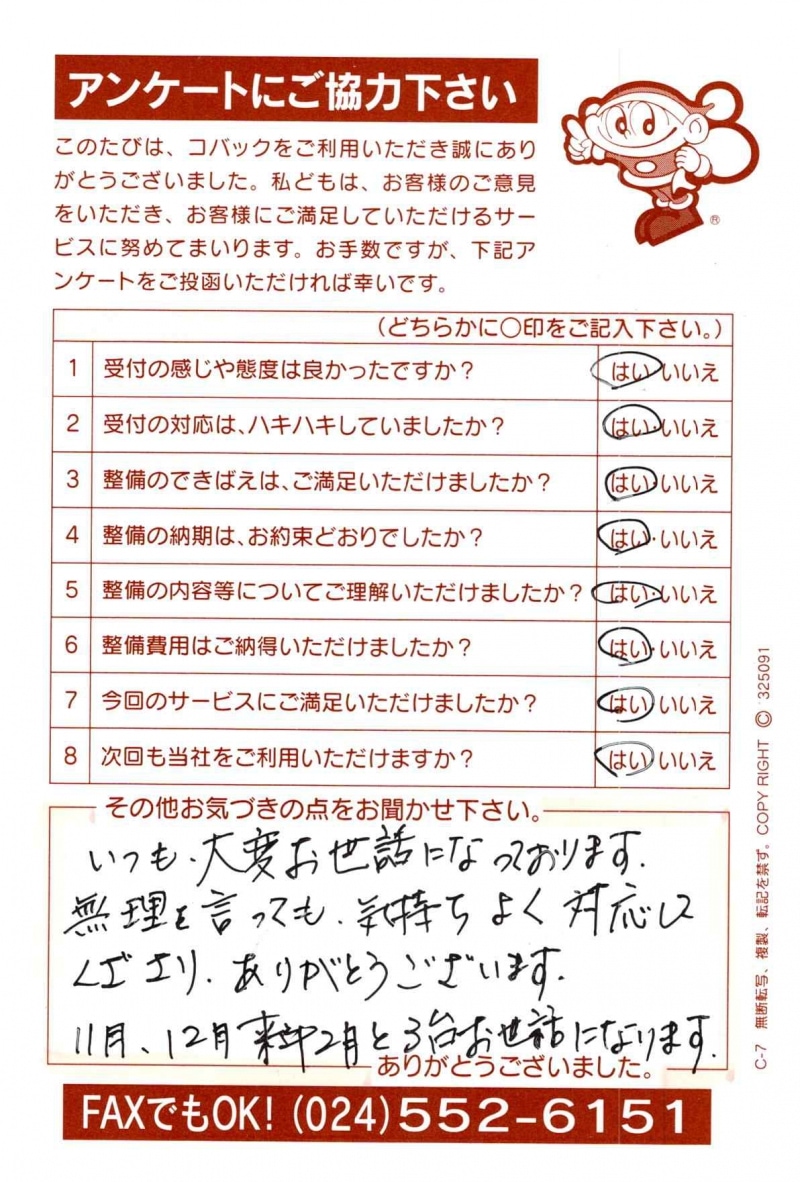 アンケートにご協力下さい
このたびは、コバックをご利用いただき誠にあり
がとうございました。私どもは、お客様のご意見
をいただき、お客様にご満足していただけるサー
ビスに努めてまいります。お手数ですが、下記ア
ンケートをご投函いただければ幸いです。
®
（どちらかに○印をご記入下さい。）
1 受付の感じや態度は良かったですか？ はい・いいえ
2 受付の対応は、ハキハキしていましたか？ はい・いいえ
3 整備のできばえは、ご満足いただけましたか？ はい・いいえ
4 整備の納期は、お約束どおりでしたか？ はい・いいえ
5 整備の内容等についてご理解いただけましたか？ はい・いいえ
6 整備費用はご納得いただけましたか？ はい・いいえ
7 今回のサービスにご満足いただけましたか？ はい・いいえ
8 次回も当社をご利用いただけますか？ はい・いいえ
その他お気づきの点をお聞かせ下さい。
いつも、大変お世話になっております。
無理を言っても、気持ちよく対応して
くださり、ありがとうございます。
11月、12月来年2月と3台お世話になります。
ありがとうございました。
FAXでもOK！（024）552-6151
C-7 無断転写、複製、転記を禁ず。COPY RIGHT © 325091